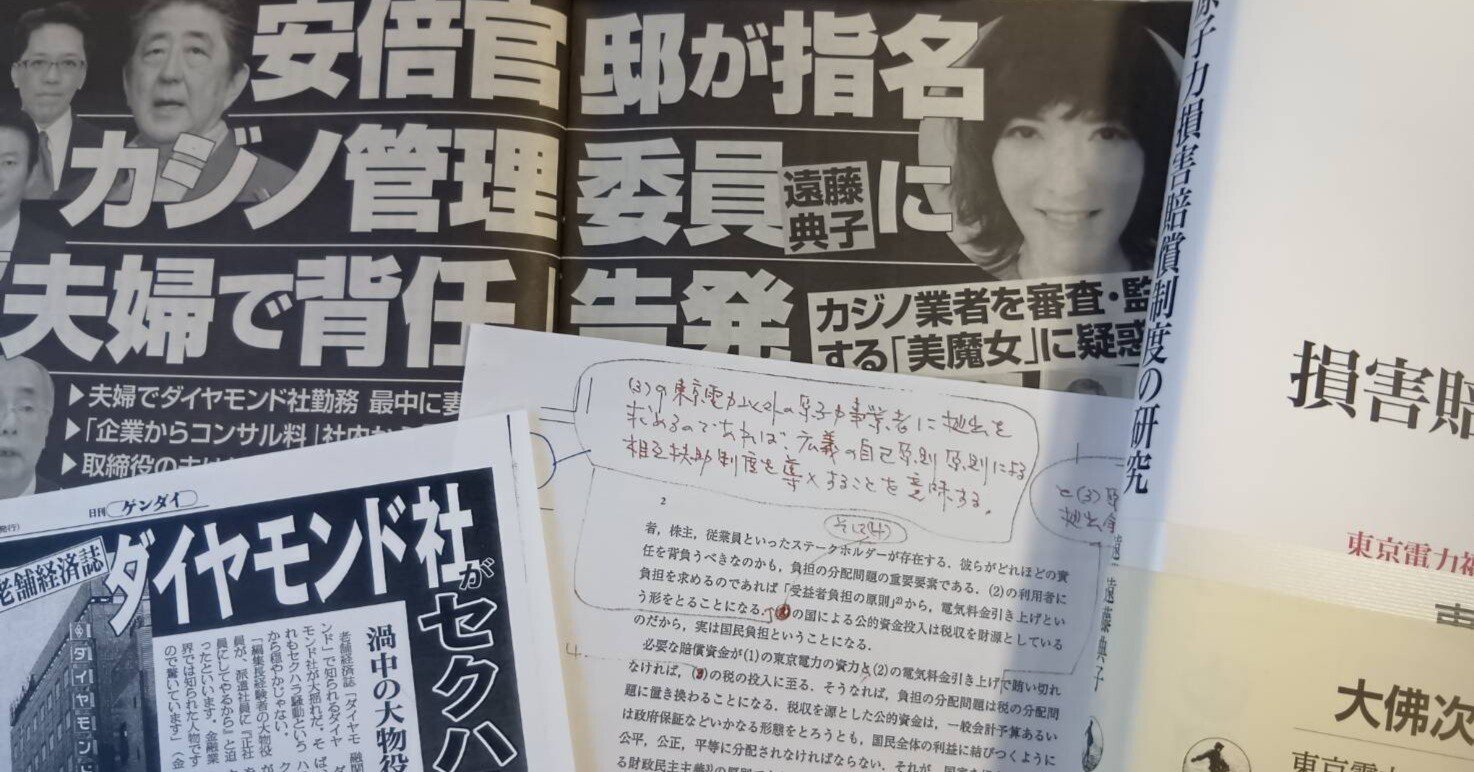 安倍官邸が指名
カジノ管理委員に
遠藤
典子
夫婦で背任告発
カジノ業者を審査・監
する「美魔女」に疑惑
▶夫婦でダイヤモンド社勤務 最中に妻
▶「企業からコンサル料」社内から
▶取締役の夫は
日刊ゲンダイ
老舗経済誌
ダイヤモンド社が
セクハ
渦中の大物役
老舗経済誌「ダイヤモ
ンド」で知られるダイヤ
モンド社が大揺れだ。そ
れもセクハラ騒動という
から穏やかじゃない。
「編集長経験者の大物役
員が、派遣社員に『正社
員にしてやるから』と迫
ったといいます。金融業
界では知られた人物です
ので驚いています」(金
ダイヤモン
(3)の東京電力以外の原子力事業者に拠出を
求めるのであれば、広義の自己原則原則による
相互扶助制度を導入することを意味する。
と(3)原
拠出金
2
そして(4)
者，株主，従業員といったステークホルダーが存在する．彼らがどれほどの責
任を背負うべきなのかも，負担の分配問題の重要要素である．(2)の利用者に
負担を求めるのであれば「受益者負担の原則」2)から，電気料金引き上げとい
う形をとることになる．の国による公的資金投入は税収を財源としている
のだから，実は国民負担ということになる．
必要な賠償資金が(1)の東京電力の資力と(2)の電気料金引き上げで賄い切れ
なければ，の税の投入に至る．そうなれば，負担の分配問題は税の分配問
題に置き換わることになる．税収を源とした公的資金は，一般会計予算あるい
は政府保証などいかなる形態をとろうとも，国民全体の利益に結びつくように
公平，公正，平等に分配されなければならない．それが，国家を
る財政民主主義3)の原則で
4
原子力損害賠償制度の研究
遠藤典子
損害賠
東京電力福
大佛次
東京電力